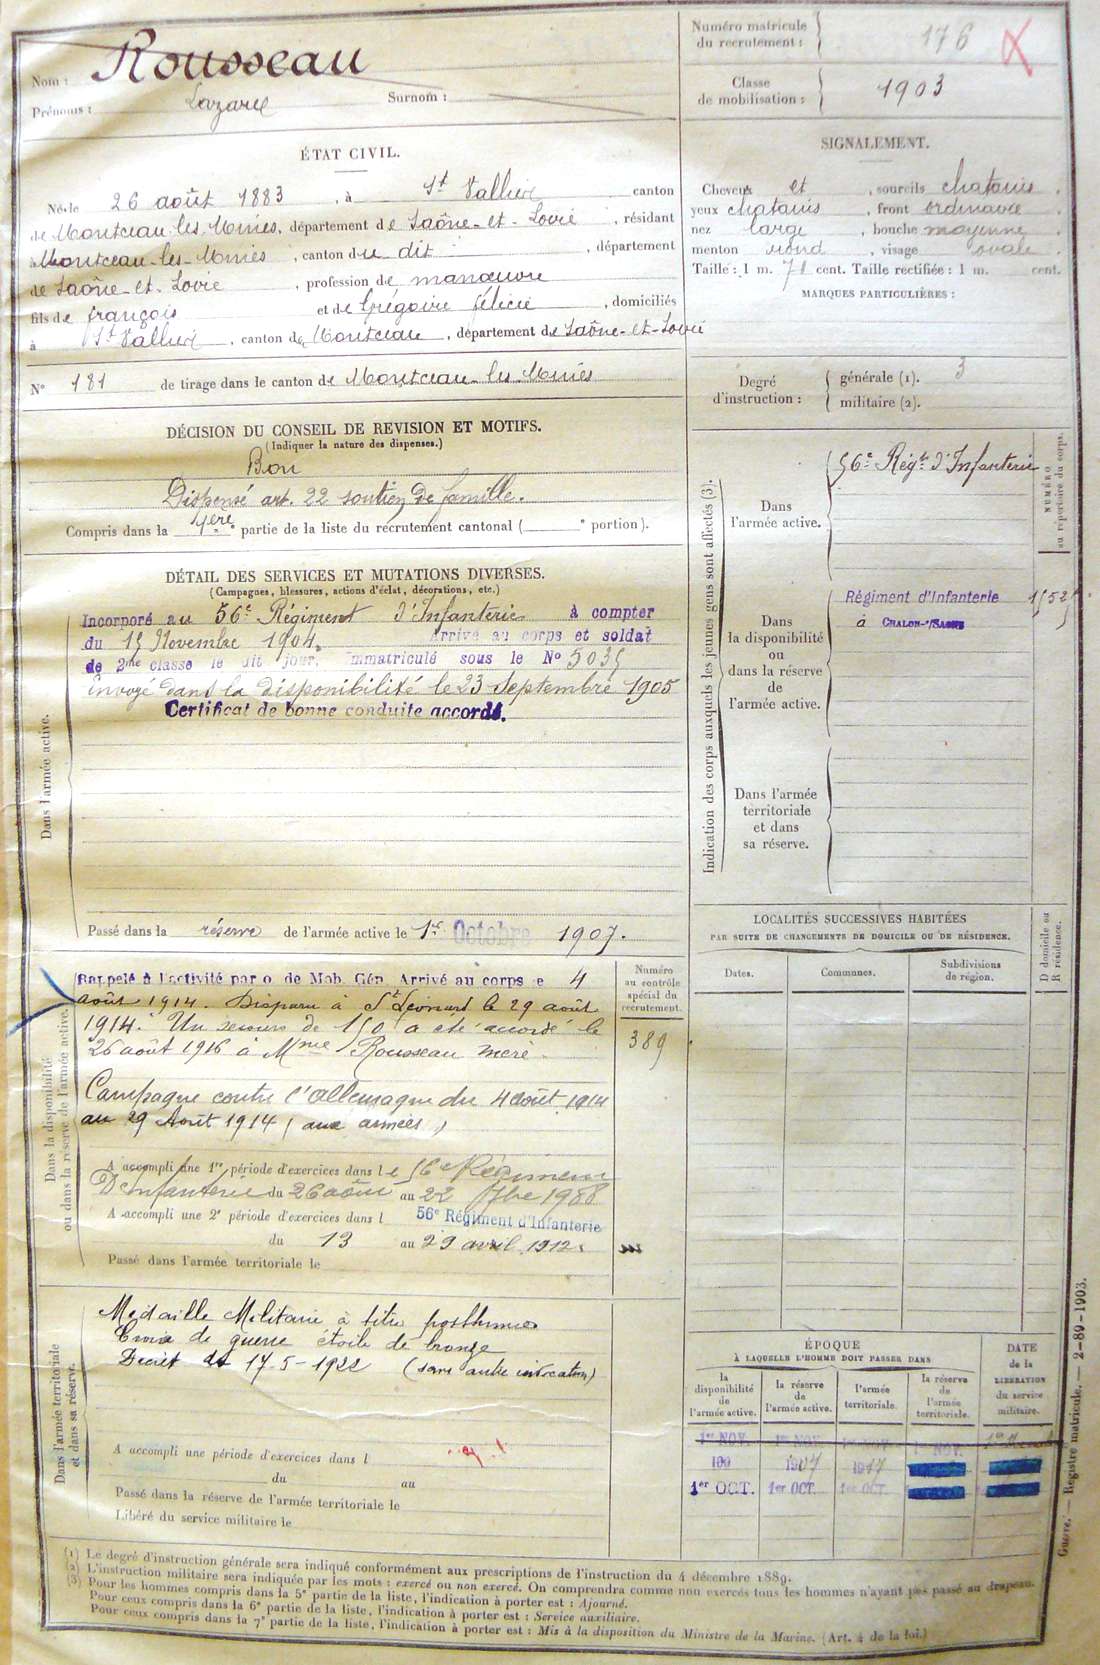 Nom : Rousseau
Prénoms : Lazare Surnom :
Numéro matricule du recrutement : 176
Classe de mobilisation : 1903
ÉTAT CIVIL.
Né le 26 août 1883, à St Vallier canton
de Montceau-les-Mines, département de Saône-et-Loire, résidant
à Montceau-les-Mines, canton du dit, département
de Saône-et-Loire, profession de manœuvre
fils de françois et de Grégoire félicie, domiciliés
à St Vallier, canton de Montceau, département de Saône-et-Loire
N° 181 de tirage dans le canton de Montceau-les-Mines
SIGNALEMENT.
Cheveux et, sourcils chatains.
yeux chatains, front ordinaire.
nez large, bouche moyenne.
menton rond, visage ovale.
Taille : 1 m. 71 cent. Taille rectifiée : 1 m. cent.
MARQUES PARTICULIÈRES :
Degré d'instruction : générale (1). 3
militaire (2).
DÉCISION DU CONSEIL DE REVISION ET MOTIFS.
(Indiquer la nature des dispenses.)
Bon
Dispensé art. 22 soutien de famille.
Compris dans la 1ère partie de la liste du recrutement cantonal ( e portion).
DÉTAIL DES SERVICES ET MUTATIONS DIVERSES.
(Campagnes, blessures, actions d'éclat, décorations, etc.)
Dans l'armée active.
Incorporé au 56e Régiment d'Infanterie à compter
du 15 Novembre 1904. Arrivé au corps et soldat
de 2me classe le dit jour. Immatriculé sous le No 5035
envoyé dans la disponibilité le 23 Septembre 1905
Certificat de bonne conduite accordé.
Passé dans la réserve de l'armée active le 1er Octobre 1907.
Indication des corps auxquels les jeunes gens sont affectés (3).
NUMÉRO au répertoire du corps.
Dans l'armée active.
56e Régt d'Infanterie
Dans la disponibilité ou dans la réserve de l'armée active.
Régiment d'Infanterie
à CHALON-s/SAONE
Dans l'armée territoriale et dans sa réserve.
LOCALITÉS SUCCESSIVES HABITÉES
PAR SUITE DE CHANGEMENTS DE DOMICILE OU DE RÉSIDENCE.
D domicile ou R résidence.
Dates. Communes. Subdivisions de région.
Dans la disponibilité ou dans la réserve de l'armée active.
Numéro au contrôle spécial du recrutement.
389
Rappelé à l'activité par o de Mob. Gén Arrivé au corps e 4
août 1914. Disparu à St Léonard le 29 août
1914. Un secours de 150 a été accordé le
26 août 1916 à Mme Rousseau mère.
Campagne contre l'Allemagne du 4 août 1914
au 29 Août 1914 (aux armées)
A accompli une 1re période d'exercices dans le 56e Régiment
D'Infanterie du 26 août au 22 7bre 1908
A accompli une 2e période d'exercices dans l 56e Régiment d'Infanterie
du 13 au 29 avril 1912.
Passé dans l'armée territoriale le
Dans l'armée territoriale et dans sa réserve.
Médaille Militaire à titre posthume
Croix de guerre étoile de bronze
Décret du 17-5-1922 (sans autre indication)
A accompli une période d'exercices dans l
du au
Passé dans la réserve de l'armée territoriale le
Libéré du service militaire le
ÉPOQUE
À LAQUELLE L'HOMME DOIT PASSER DANS
DATE de la LIBÉRATION du service militaire.
la disponibilité de l'armée active. la réserve de l'armée active. l'armée territoriale. la réserve de l'armée territoriale.
1er NOV. 1er NOV. 1er NOV. 1er NOV.
190 1907 1917
1er OCT. 1er OCT. 1er OCT.
Guerre. — Registre matricule. — 2-89-1903.
(1) Le degré d'instruction générale sera indiqué conformément aux prescriptions de l'instruction du 4 décembre 1889.
(2) L'instruction militaire sera indiquée par les mots : exercé ou non exercé. On comprendra comme non exercés tous les hommes n'ayant pas passé au drapeau.
(3) Pour les hommes compris dans la 5e partie de la liste, l'indication à porter est : Ajourné.
Pour ceux compris dans la 6e partie de la liste, l'indication à porter est : Service auxiliaire.
Pour ceux compris dans la 7e partie de la liste, l'indication à porter est : Mis à la disposition du Ministre de la Marine. (Art. 4 de la loi.)